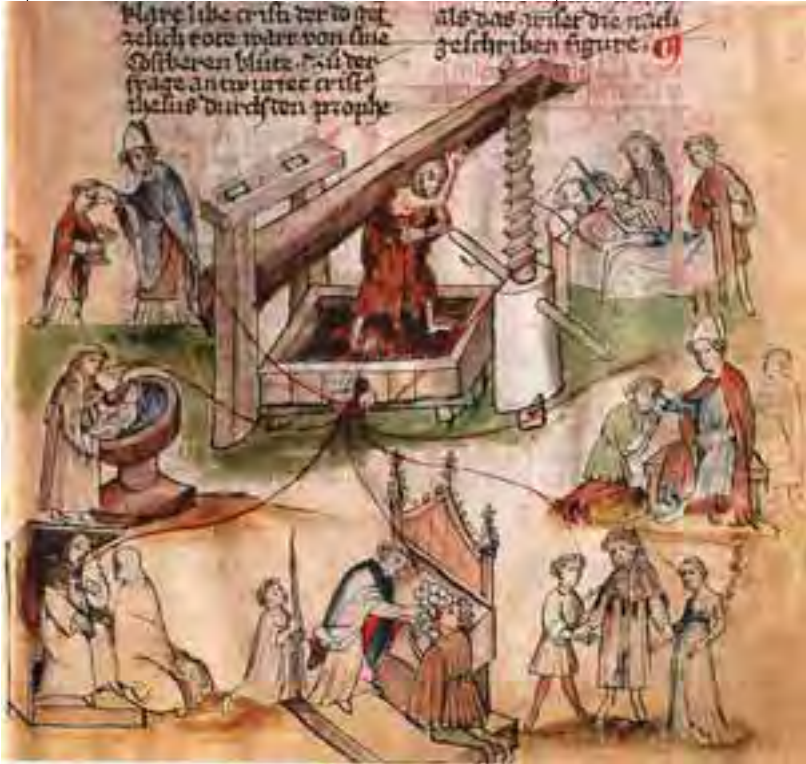 klare libe cristi der do got
zelich rote wart von sine
Costberen blute. Zu der
frage antwurtet crist
ihesus durch den prophe
als das wiset die nach
geschriben figure.